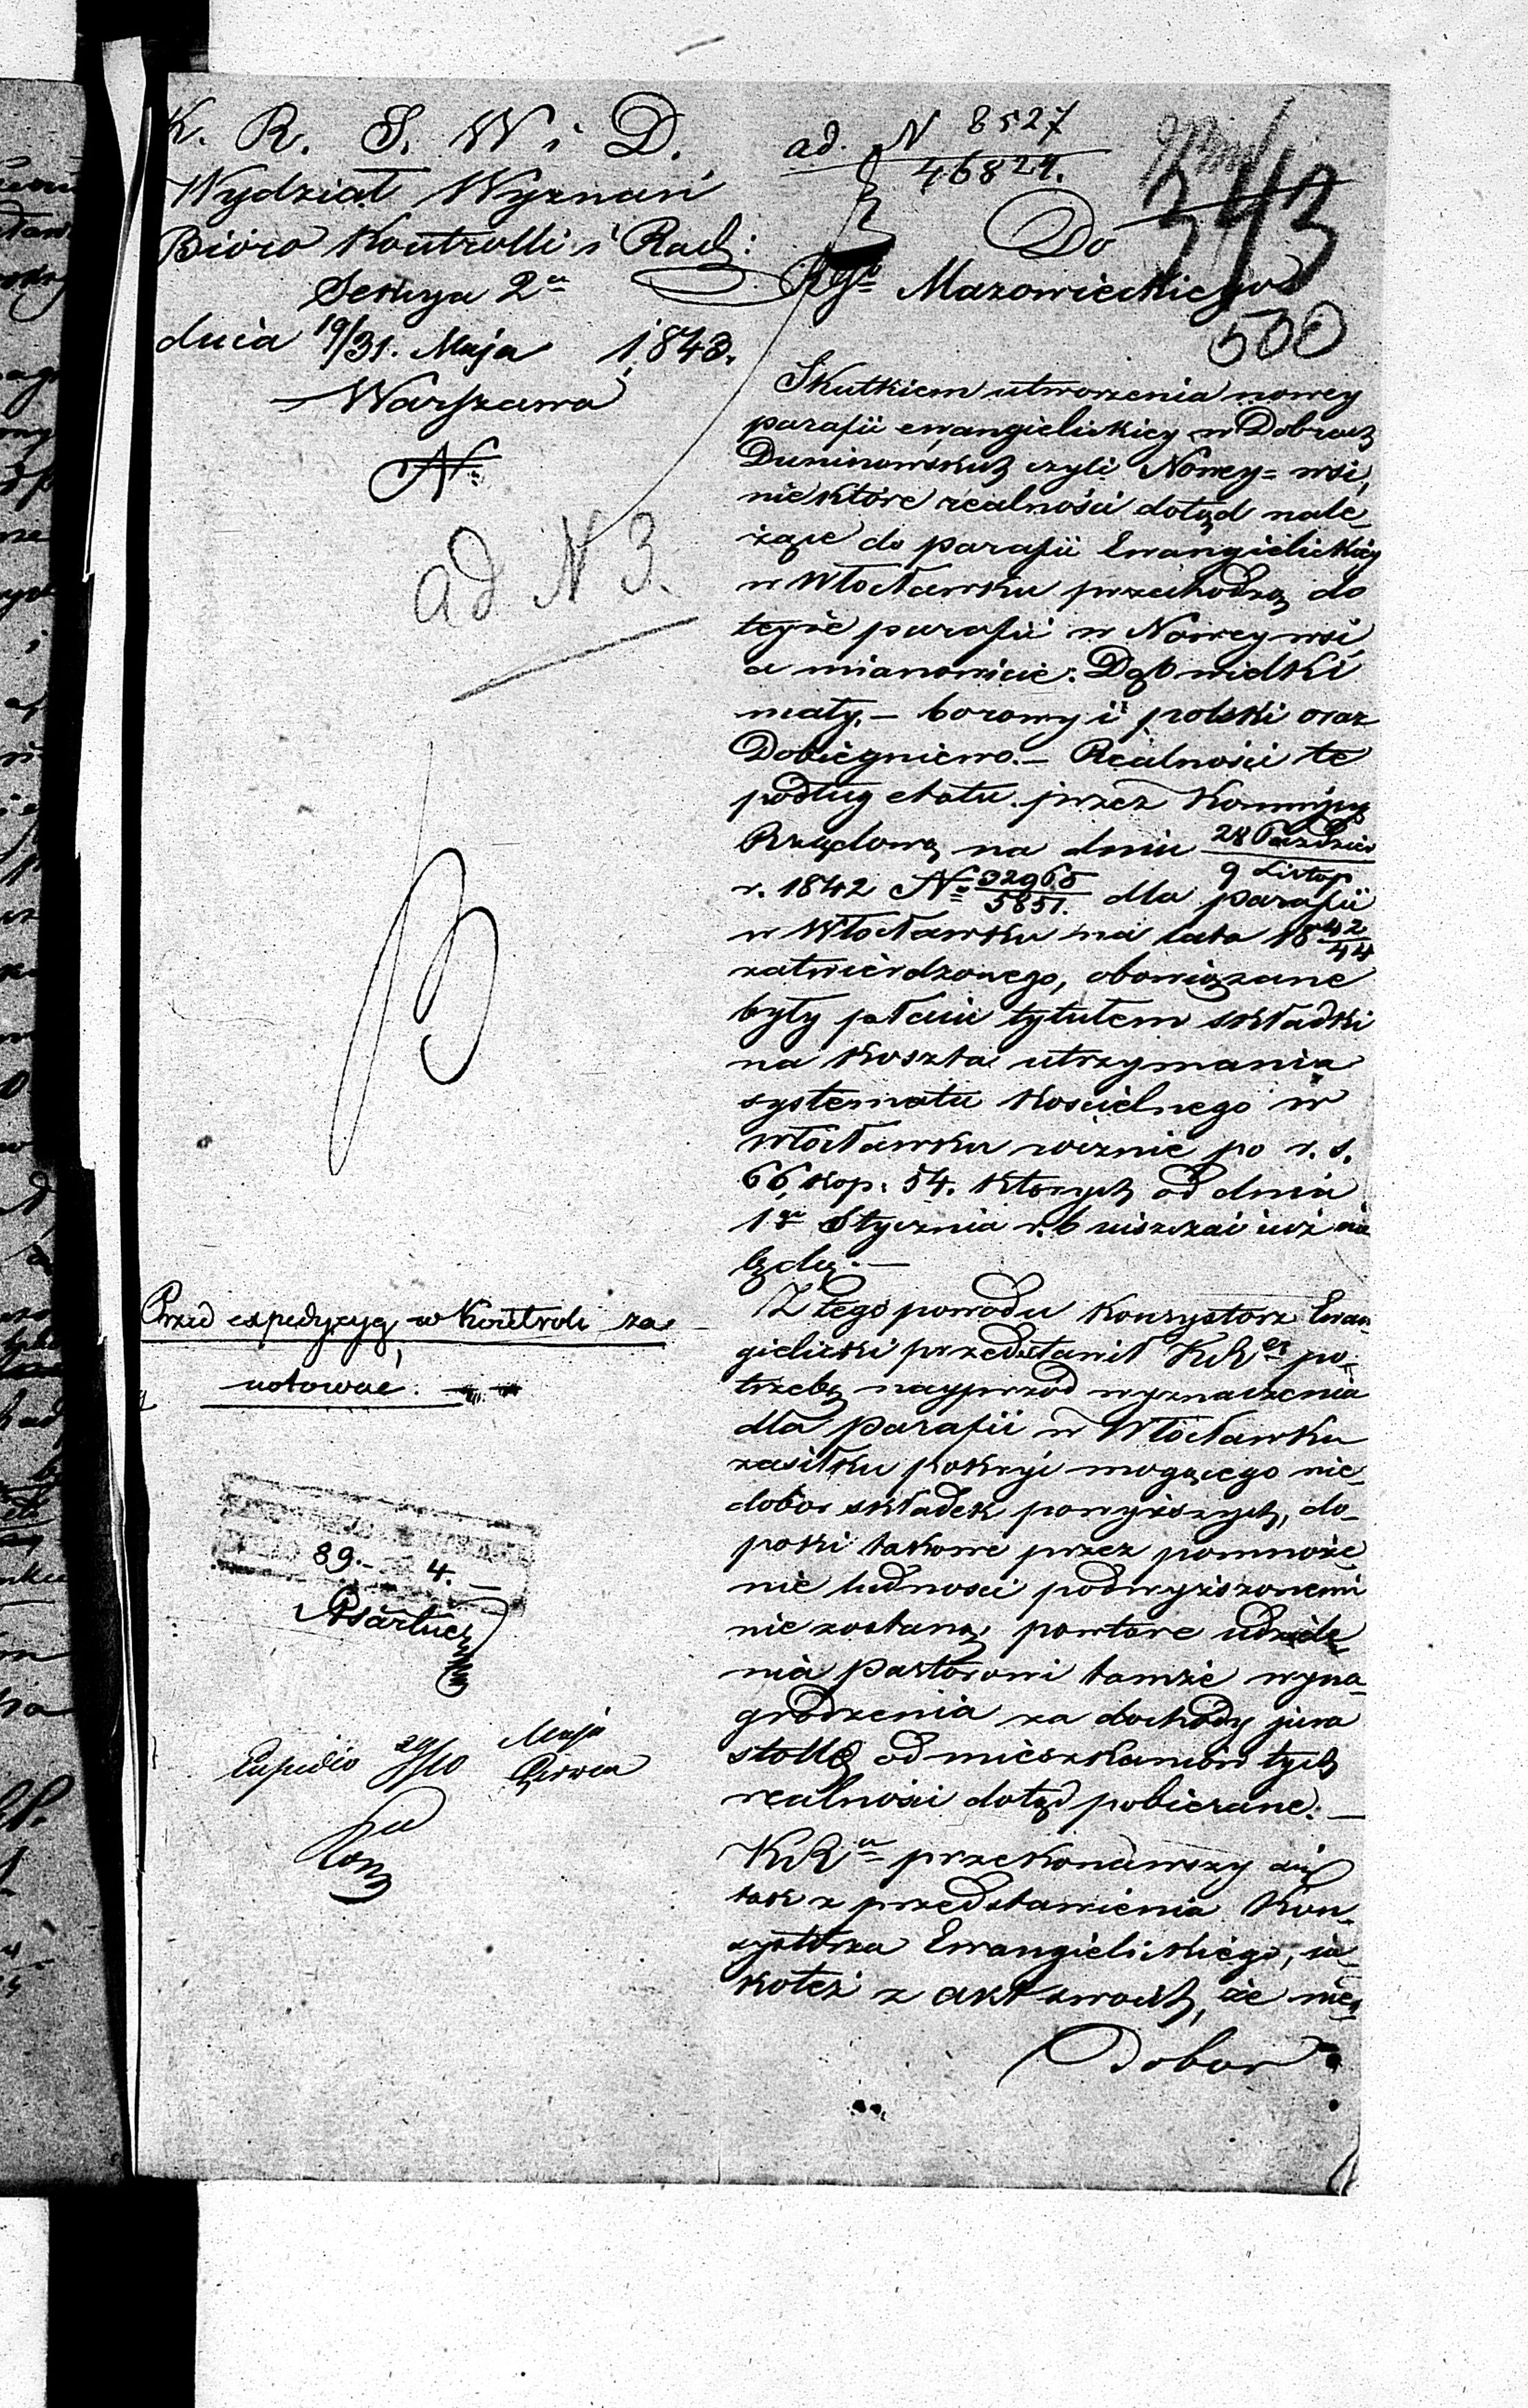 K. R. S. W i D.
Wydział Wyznań
Bióro Kontrolli i Rach:
Sekcya 2a
dnia 19/31. Maja 1843.
Warszawa
N:
ad N 3.
Przed expedycyą w Kontroli za-
notować.
89.- 4.-
29/10 Maja
Czerwca
ad. N 8527
46824.
343
500
Do
Rgu Mazowieckiego
Skutkiem utworzenia nowey
parafii ewangielickiey w Dobrach
Duninowskich czyli Nowey-wsi,
niektóre realności dotąd nale-
żące do parafii Ewangielickiey
w Włocławku przechodzą do
teyże parafii w Nowey wsi
a mianowicie: Dąb wielki
mały,- borowy i polski oraz
Dobiegniewo.- Realności te
podług etatu przez Kommissyę
Rządową na dniu 28 Paździer
9 Listop
r. 1842 No 32965/5851. dla parafii
w Włocławku na lata 1842/44
zatwierdzonego, obowiązane
były płacić tytułem składki
na koszta utrzymania
systematu kościelnego w
Włocławku rocznie po r. s.
66, kop: 54. których od dnia
1go Stycznia r. b uiszczać iuż nie
będą.-
Z tego powodu Konsystorz Ewan-
gielicki przedstawił KRey po-
trzebę nayprzód wyznaczenia
dla parafii w Włocławku
zasiłku pokryć mogącego nie-
dobór składek powyższych, do-
póki takowe przez pomnoże-
nie ludności podwyższonemi
nie zostaną, powtóre udziele-
nia pastorowi tamże wyna-
grodzenia za dochody jura
stollę od mieszkańców tych
realności dotąd pobierane.-
KRa przekonawszy się
tak z przedstawienia Kon-
systorza Ewangielickiego, ia-
koteż z akt swoich, że nie-
dobor